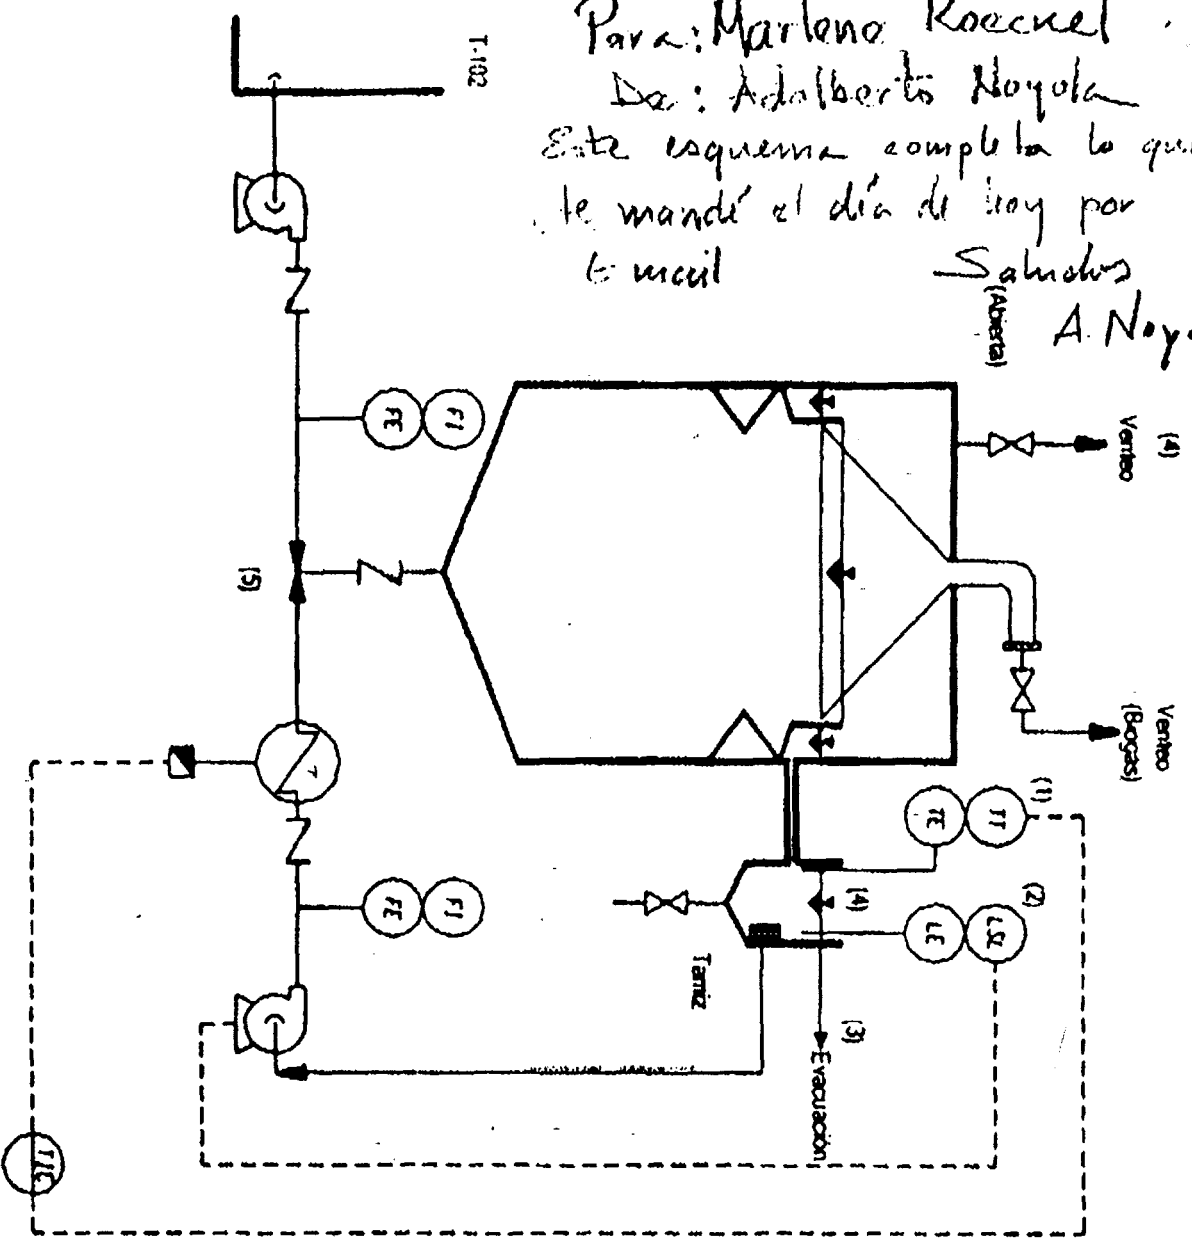 Para: Marlene Roeckel
De: Adalberto Noyola
Este esquema completa lo que
te mandé el día de hoy por
E-mail Saludos
A. Noyo
T-102
(Abierta)
(4)
Venteo
Venteo
(Biogas)
FE FI
(5)
(1)
TE TT
(2)
LE LSL
(4)
(3)
Evacuación
Tamiz
FE FI
TIC